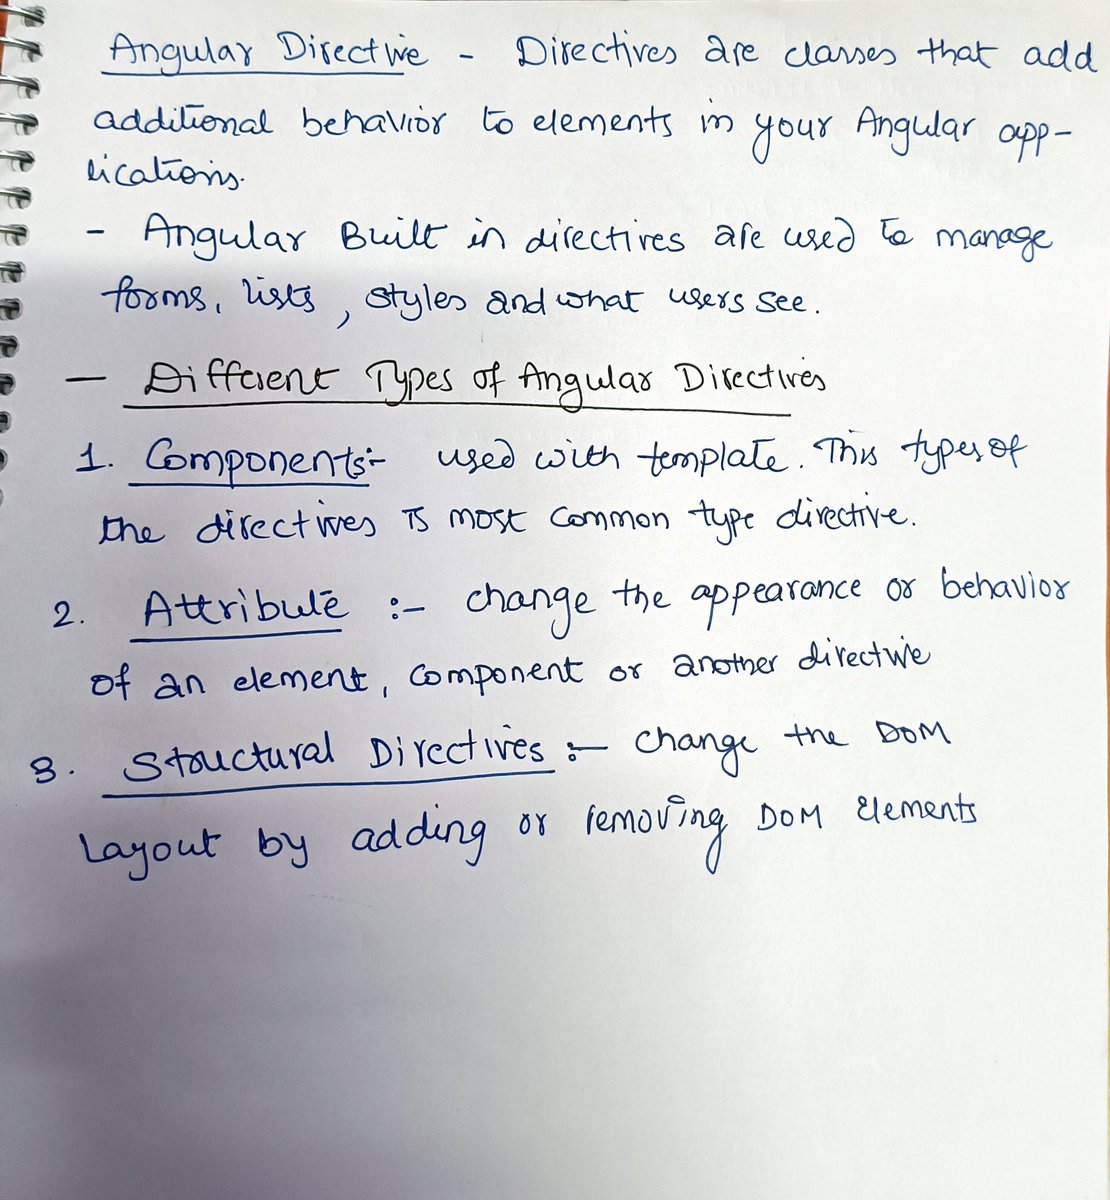 Angular Directive - Directives are classes that add
additional behavior to elements in your Angular app-
lications.
- Angular Built in directives are used to manage
forms, lists, styles and what users see.
- Different Types of Angular Directives
1. Components:- used with template. This types of
the directives is most common type directive.
2. Attribute :- change the appearance or behavior
of an element, component or another directive
3. Structural Directives :- change the DOM
Layout by adding or removing DOM Elements